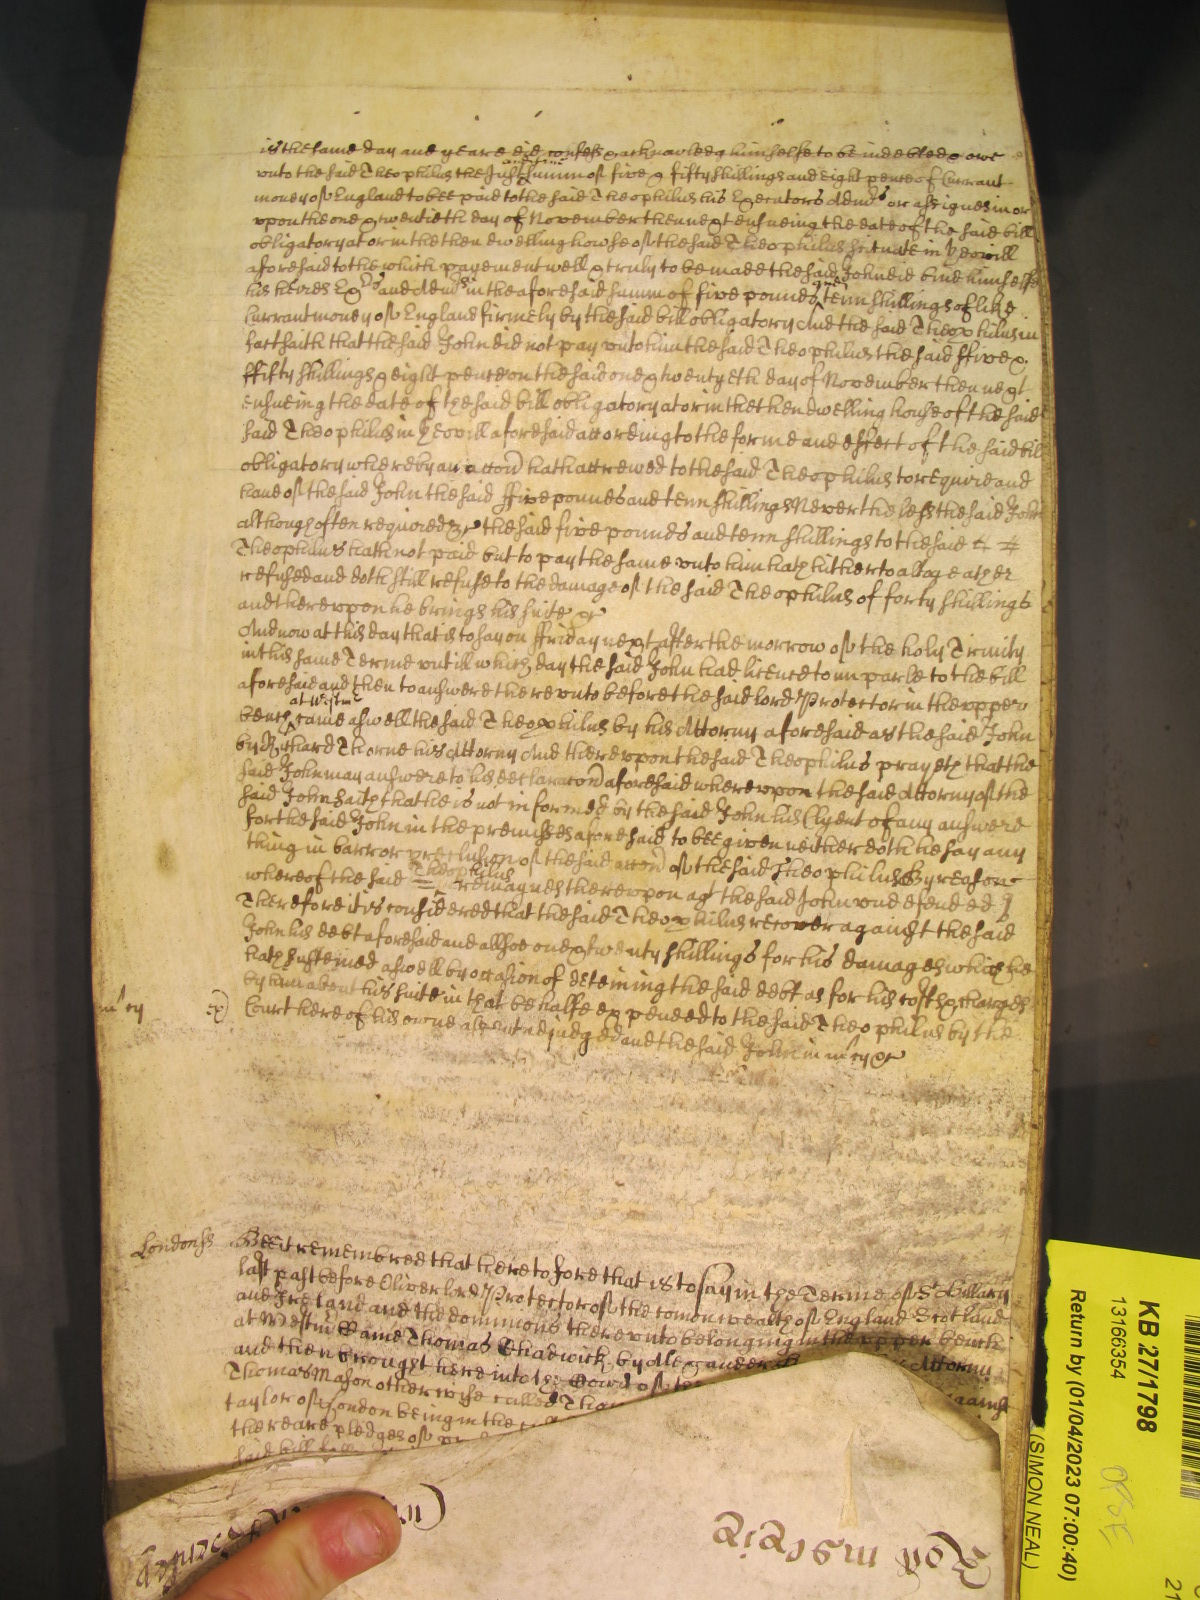 in the same day and yeare did confess & acknowledg himselfe to be indebted & owe
vnto the said Theophilus the Just summ of five & fifty shillings and eight pence of Currant
money of England to bee paid to the said Theophilus his Executors Admrs or assignes in or
vpon the one & twentieth day of November then next ensueing the date of the said bill
obligatory at or in the then dwelling howse of the said Theophilus scituate in Yeovill
aforesaid to the which payement well & truly to be made the said John did bind himselfe
his heires Exrs and Admrs in the aforesaid summ of five pounds and tenn shillings of like
Currant money of England firmely by the said bill obligatory And the said Theophilus in
fact saith that the said John did not pay vnto him the said Theophilus the said ffive &
ffifty shillings & eight pence on the said one & twentyeth day of November then next
ensueing the date of the said bill obligatory at or in the then dwelling house of the said
said Theophilus in Yeovill aforesaid according to the forme and effect of the said bill
obligatory whereby an accon hath accrewed to the said Theophilus to require and
have of the said John the said ffive pounds and tenn shillings Nevertheless the said John
although often required &c the said five pounds and tenn shillings to the said
Theophilus hath not paid but to pay the same vnto him hath hitherto altogeather
refused and doth still refuse to the damage of the said Theophilus of forty shillings
and therevpon he brings his suite &c
And now at this day that is to say on ffriday next after the morrow of the holy Trinity
in this same Terme vntill which day the said John had licence to imparle to the bill
aforesaid and then to answere therevnto before the said lord Protector in the vpper
bench at Westmr came aswell the said Theophilus by his Attorny aforesaid as the said John
by Richard Thorne his Attorny And therevpon the said Theophilus prayeth that the
said John may answere to his declaracon aforesaid wherevpon the said Attorny of the
said John saith that he is not informed by the said John his Clyent of any answere
for the said John in the premisses aforesaid to bee given neither doth he say any
thing in barr or preclusion of the said accon of the said Theophilus By reason
whereof the said Theophilus remaynes therevpon agt the said John vndefended
Therefore it is considered that the said Theophilus recover against the said
John his debt aforesaid and allsoe one & twenty shillings for his damages which he
hath susteined aswell by occasion of deteining the said debt as for his costs & charges
by him about his suite in that behalfe expended to the said Theophilus by the
m'cy Court here of his owne assent adjudged and the said John in m'cy &c
Londonss Bee it remembred that heretofore that is to say in the Terme of St Hillary
last past before Oliver lord Protector of the comonwealth of England Scotland
and Ireland and the dominions therevnto belonging in the vpper bench
at Westmr Came Thomas Chadwick by Alexander Attorny
and then brought here into the Court of the against
Thomas Mason otherwise called Tho
taylor of London being in the
there are pledges of
said bill
KB 27/1798
13166354
Return by (01/04/2023 07:00:40)
(SIMON NEAL)